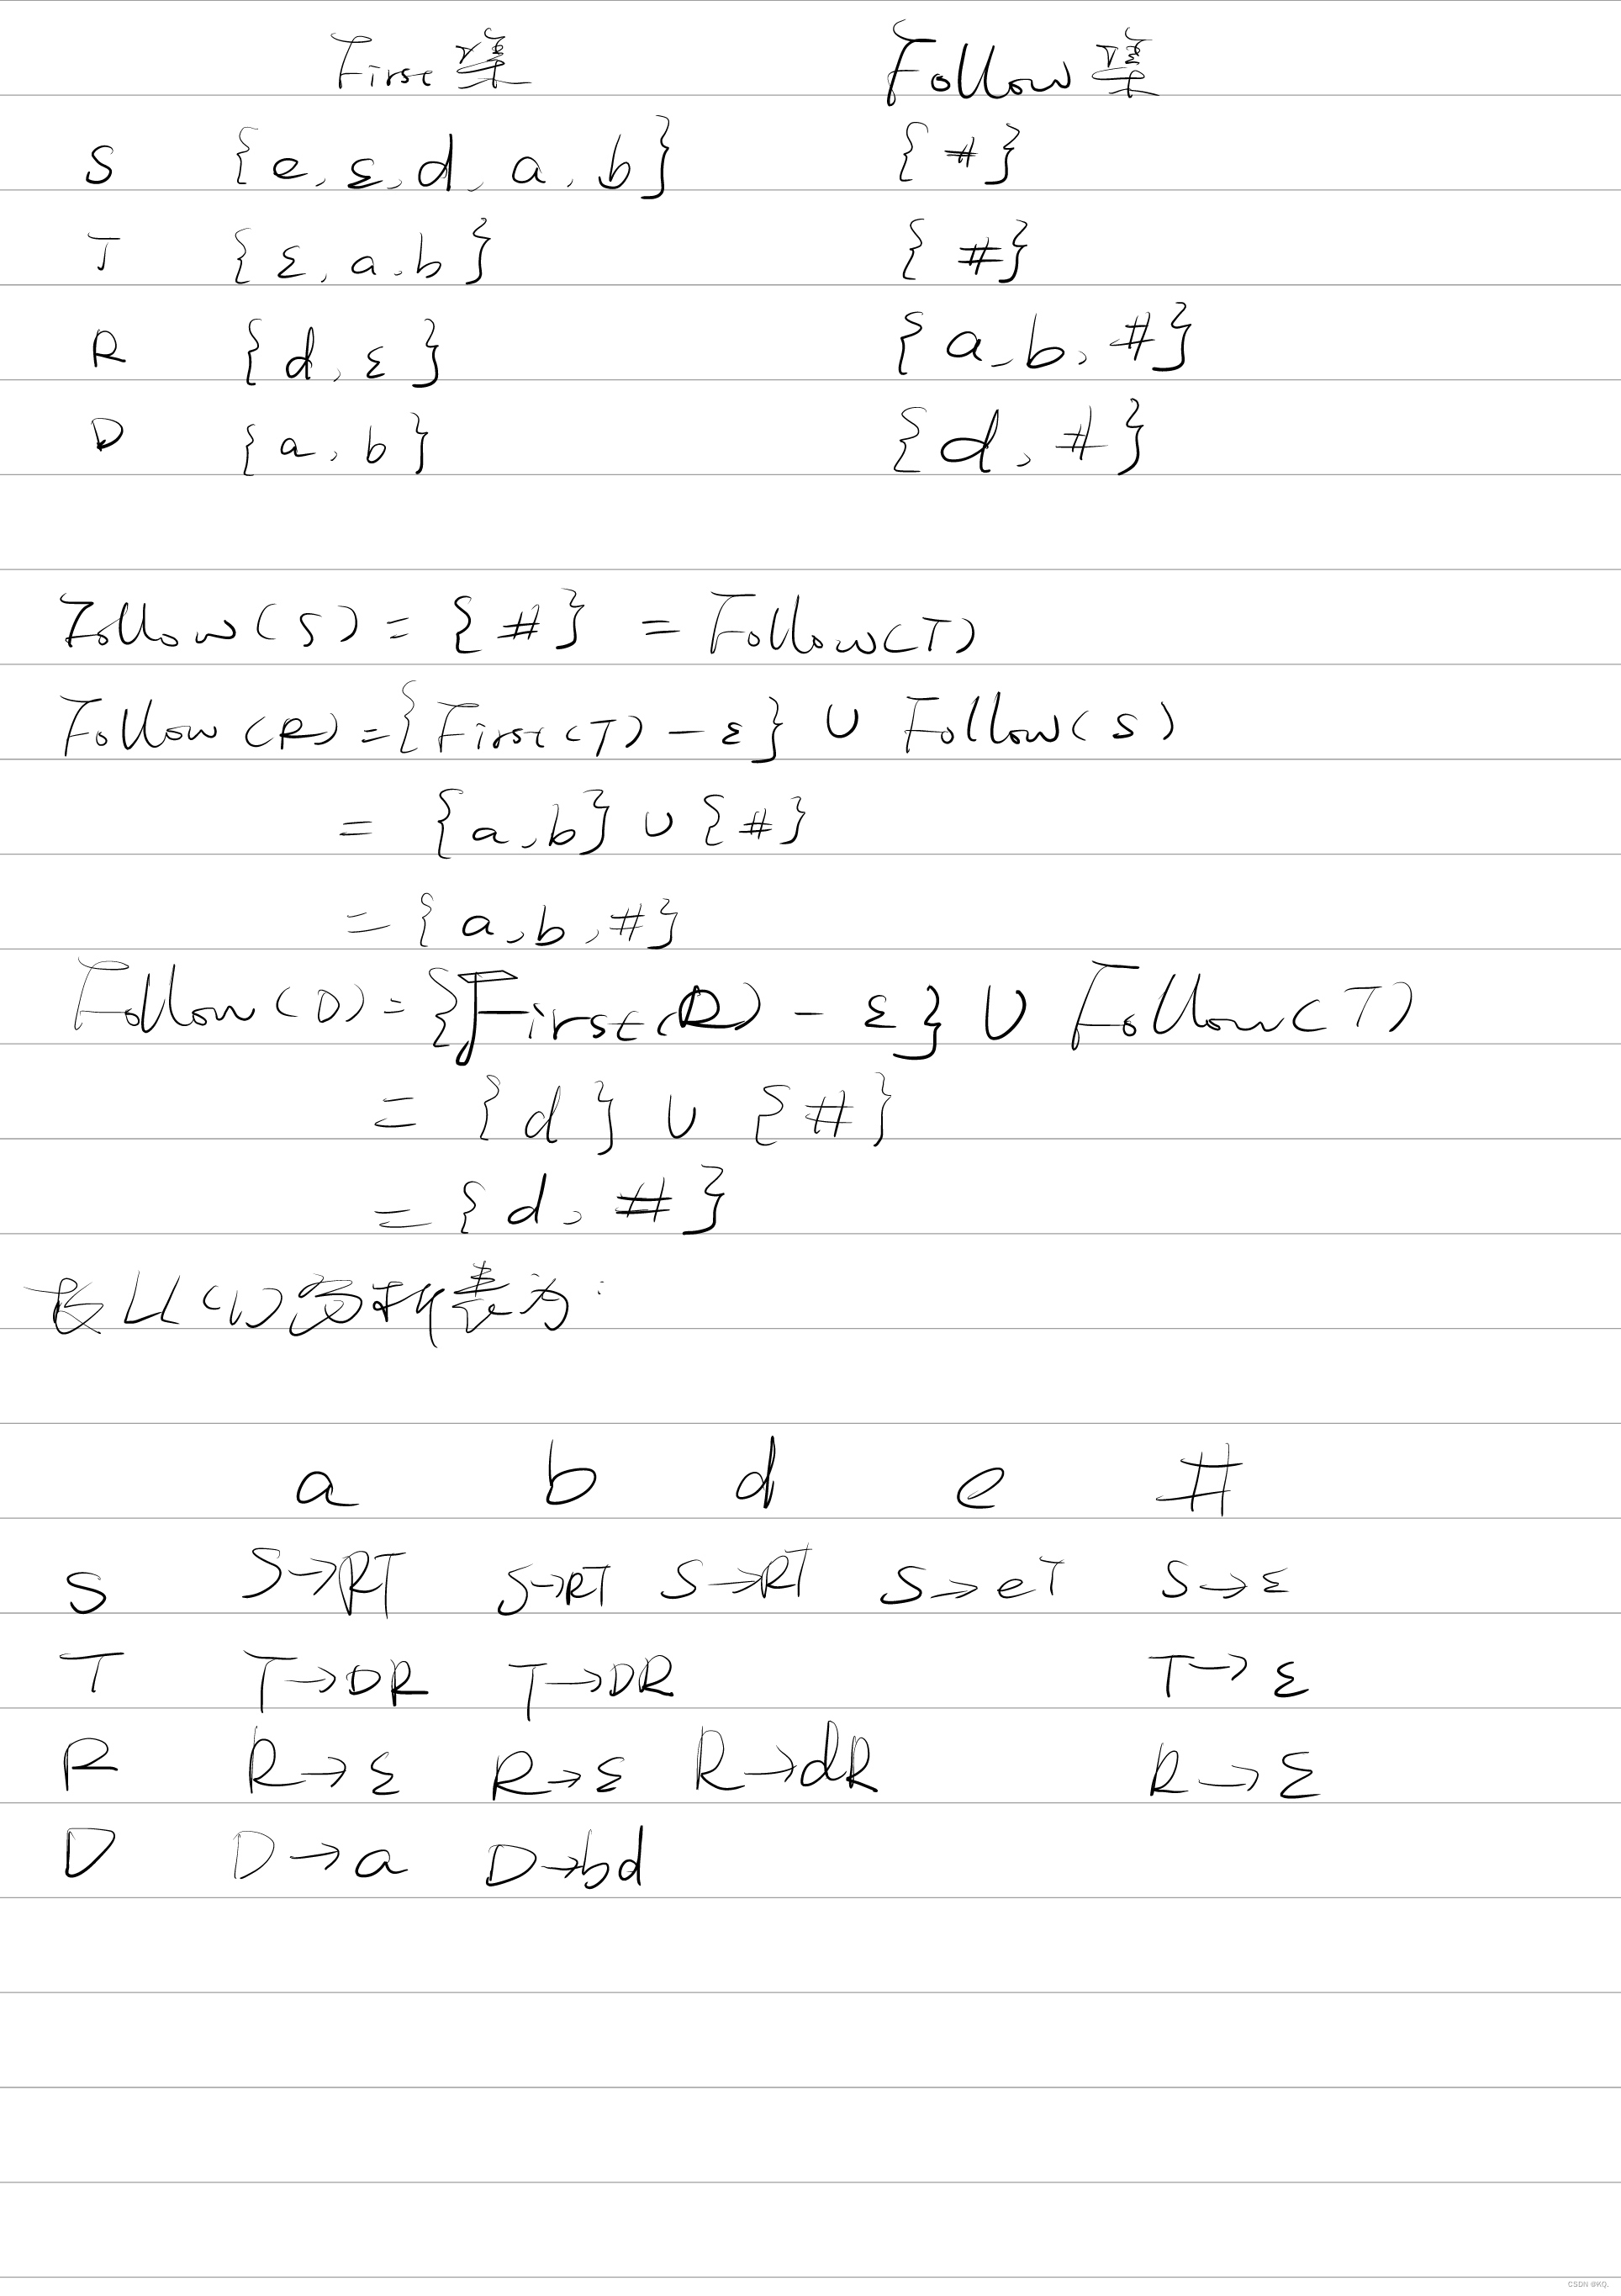 First集 Follow集
S {e, ε, d, a, b} {#}
T {ε, a, b} {#}
R {d, ε} {a, b, #}
D {a, b} {d, #}
Follow(S) = {#} = Follow(T)
Follow(R) = {First(T) - ε} ∪ Follow(S)
= {a, b} ∪ {#}
= {a, b, #}
Follow(D) = {First(R) - ε} ∪ Follow(T)
= {d} ∪ {#}
= {d, #}
故LL(1)分析表为:
a b d e #
S S→RT S→RT S→RT S→eT S→ε
T T→DR T→DR T→ε
R R→ε R→ε R→dR R→ε
D D→a D→bd
CSDN @KQ.